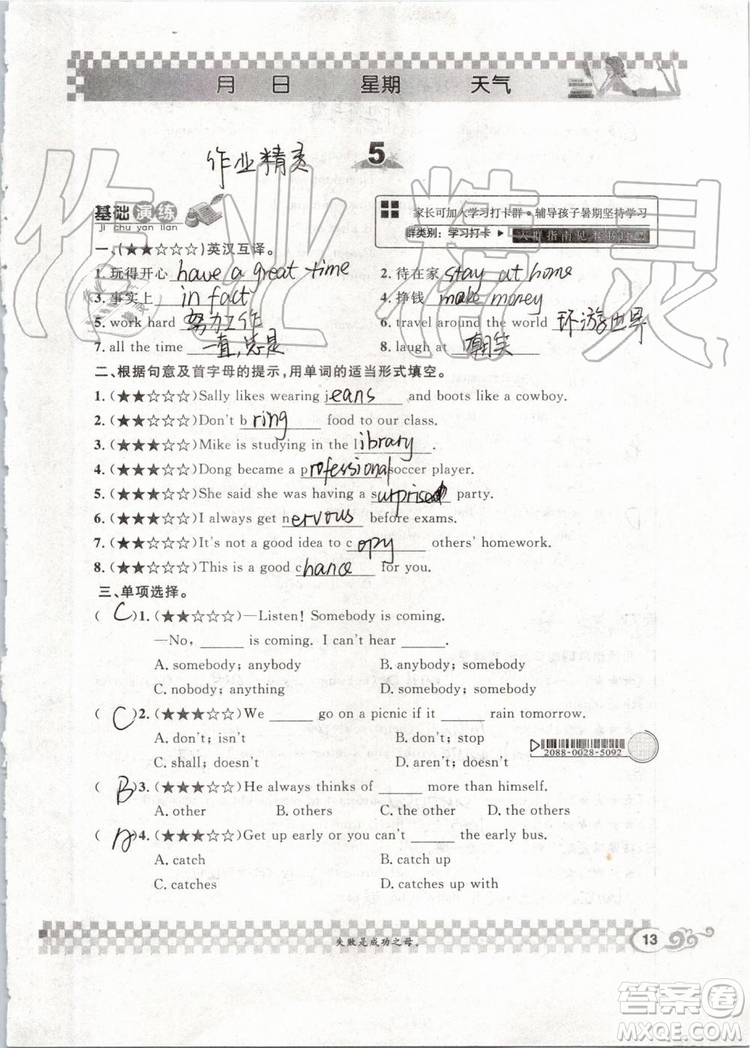 月 日 星期 天气
5
作业精灵
基础演练
ji chu yan lian
家长可加入学习打卡群·辅导孩子暑期坚持学习
群类别：学习打卡
一、(★★☆☆☆)英汉互译。
1. 玩得开心 have a great time 2. 待在家 stay at home
3. 事实上 in fact 4. 挣钱 make money
5. work hard 努力工作 6. travel around the world 环游世界
7. all the time 一直,总是 8. laugh at 嘲笑
二、根据句意及首字母的提示，用单词的适当形式填空。
1. (★★☆☆☆)Sally likes wearing jeans and boots like a cowboy.
2. (★★☆☆☆)Don't bring food to our class.
3. (★★☆☆☆)Mike is studying in the library.
4. (★★☆☆☆)Dong became a professional soccer player.
5. (★★☆☆☆)She said she was having a surprise party.
6. (★★☆☆☆)I always get nervous before exams.
7. (★★☆☆☆)It's not a good idea to copy others' homework.
8. (★★☆☆☆)This is a good chance for you.
三、单项选择。
( C )1. (★★☆☆☆)—Listen! Somebody is coming.
—No, ______ is coming. I can't hear ______.
A. somebody; anybody B. nobody; somebody
C. nobody; anything D. anybody; nobody
( C )2. (★★☆☆☆)We ______ go on a picnic if it ______ rain tomorrow.
A. don't; isn't B. don't; stop
C. shall; doesn't D. aren't; doesn't
2088-0028-5092
( B )3. (★★★☆☆)He always thinks of ______ more than himself.
A. other B. others C. the other D. the others
( A )4. (★★★☆☆)Get up early or you can't ______ the early bus.
A. catch B. catch up
C. catches D. catches up with
失败是成功之母。
13
答案圈
MXQE.COM